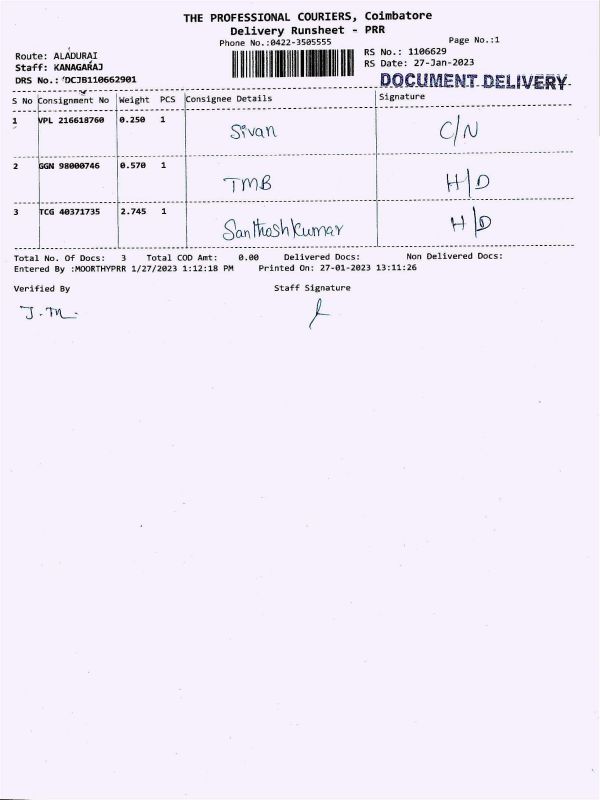 THE PROFESSIONAL COURIERS, Coimbatore
Delivery Runsheet - PRR
Phone No.:0422-3505555 Page No.:1
Route: ALADURAI RS No.: 1106629
Staff: KANAGARAJ RS Date: 27-Jan-2023
DRS No.: DCJB110662901 DOCUMENT DELIVERY
S No Consignment No Weight PCS Consignee Details Signature
1 VPL 216618760 0.250 1 Sivan C/N
2 GGN 98000746 0.570 1 TMB H/D
3 TCG 40371735 2.745 1 Santhoshkumar H/D
Total No. Of Docs: 3 Total COD Amt: 0.00 Delivered Docs: Non Delivered Docs:
Entered By :MOORTHYPRR 1/27/2023 1:12:18 PM Printed On: 27-01-2023 13:11:26
Verified By Staff Signature
J.M.